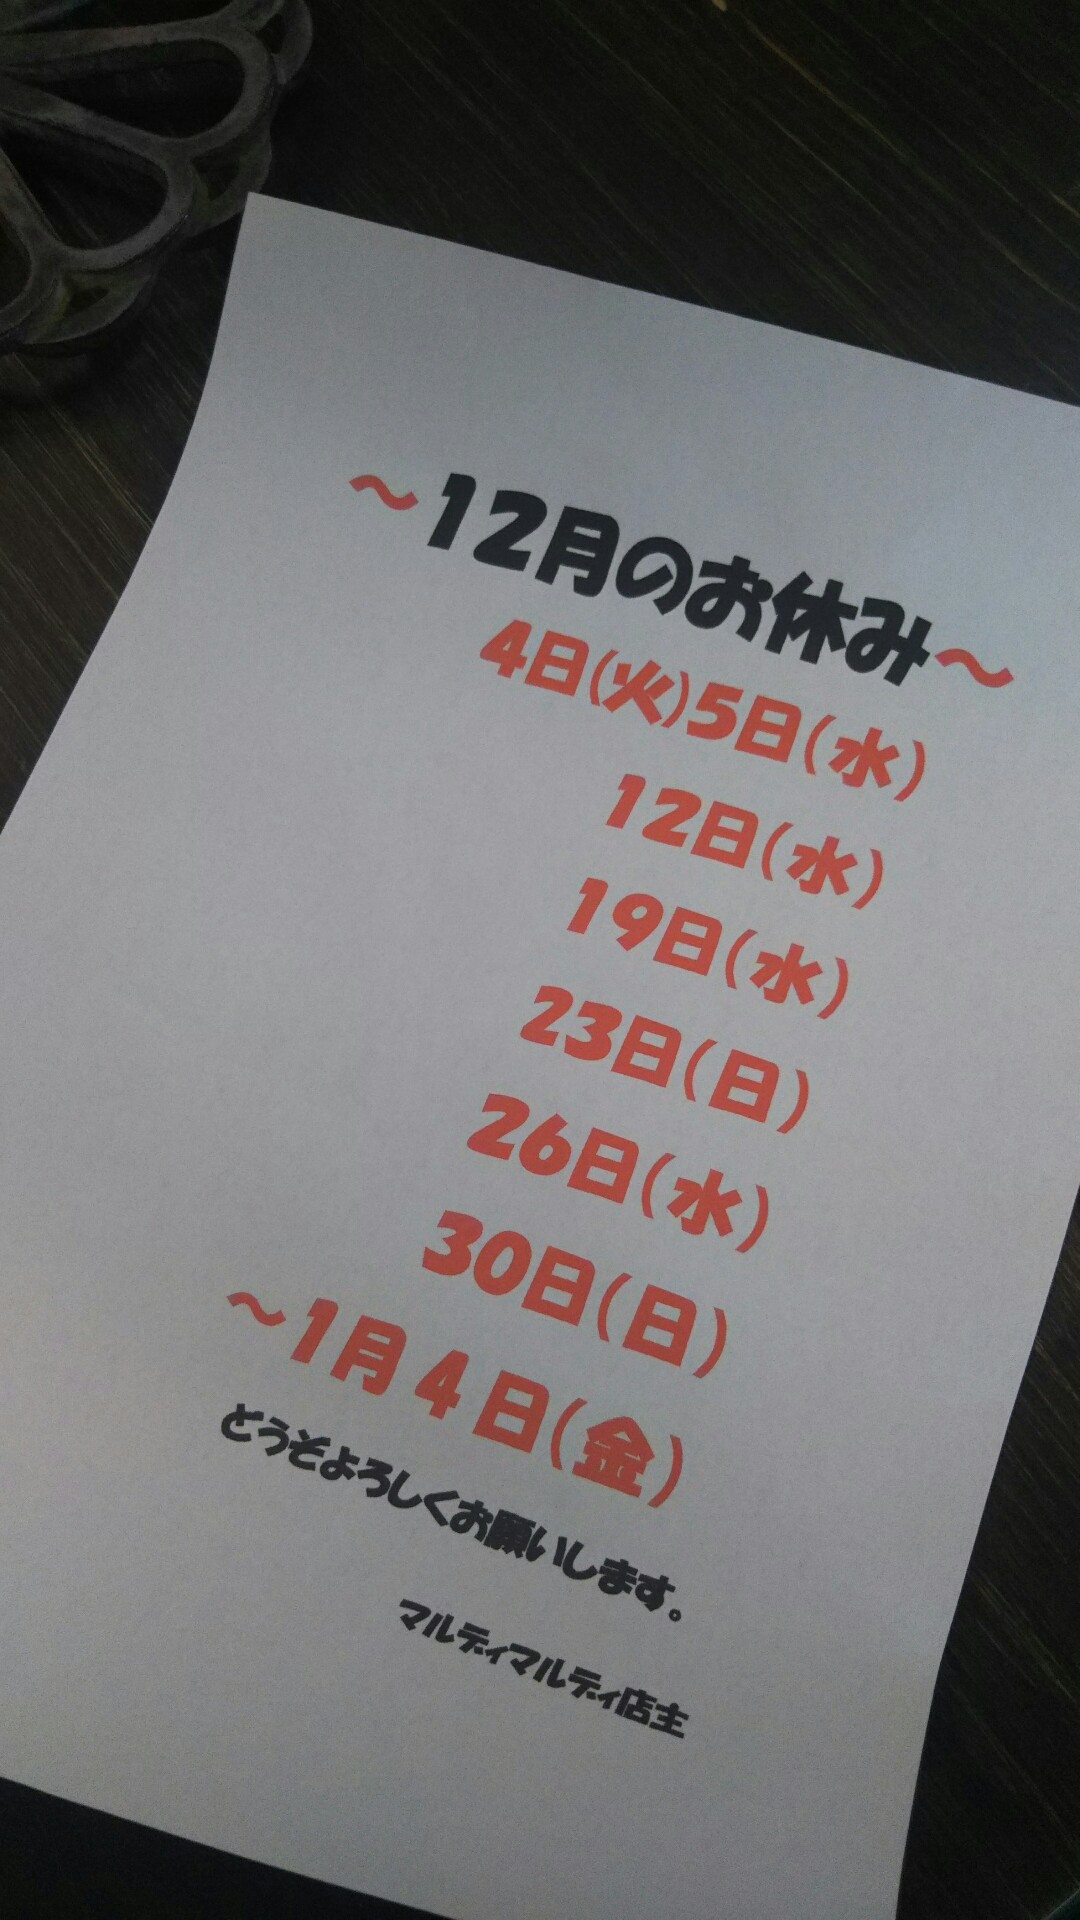 ～12月のお休み～
4日(火)5日(水)
12日(水)
19日(水)
23日(日)
26日(水)
30日(日)
～1月4日(金)
どうぞよろしくお願いします。
マルディマルディ店主